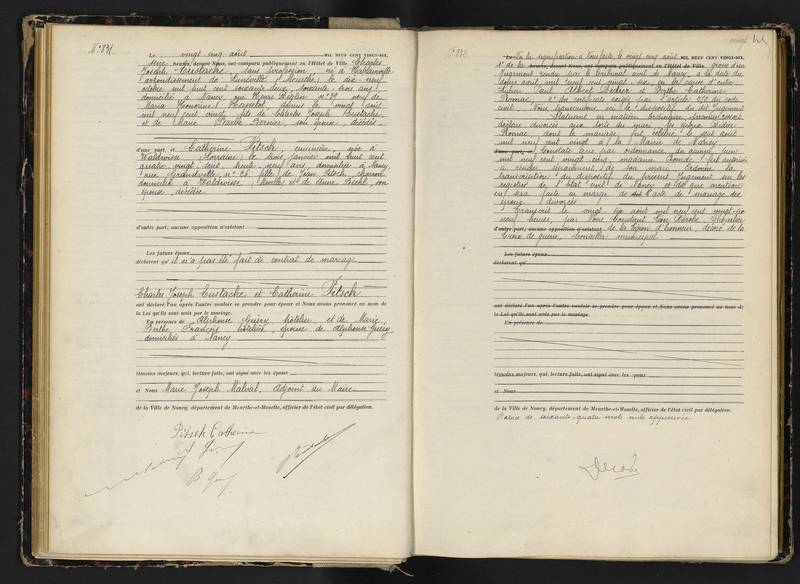 N° 831
Le vingt cinq août MIL NEUF CENT VINGT-SIX,
heures, devant Nous, ont comparu publiquement en l'Hôtel de Ville Charles
Joseph Eustache, sans profession, né à
arrondissement de Lunéville, Meurthe, le dix neuf
octobre mil huit cent soixante deux, soixante trois ans,
domicilié à Nancy, rue Henri n° 29 veuf de
Maria Honorine depuis le vingt août
mil neuf cent vingt, fils de Charles Joseph Eustache
et de Marie Bernier, son épouse, décédés
d'une part, et Catherine Pitsch, cuisinière, née à
Waldwisse Lorraine le trois janvier mil huit cent
quatre vingt sept, trente neuf ans, domiciliée à Nancy
rue Grandville, n° 26, fille de Jean Pitsch, charron
domicilié à Waldwisse, Moselle, et de Anne son
épouse, décédée
d'autre part; aucune opposition n'existant
Les futurs époux
déclarent qu'il n'a pas été fait de contrat de mariage
Charles Joseph Eustache et Catherine Pitsch
ont déclaré l'un après l'autre vouloir se prendre pour époux et Nous avons prononcé au nom de
la Loi qu'ils sont unis par le mariage.
En présence de Alphonse Guéry, hôtelier et de Marie
Berthe François, hôtelière, épouse de Alphonse Guéry
domiciliés à Nancy
témoins majeurs, qui, lecture faite, ont signé avec les époux
et Nous Marie Joseph Malval, Adjoint au Maire
de la Ville de Nancy, département de Meurthe-et-Moselle, officier de l'état civil par délégation.
Pitsch Catherine
B Guéry
N° 832
vingt
Le Vu la signification à Nous faite le vingt cinq août MIL NEUF CENT VINGT-SIX,
1° de la heures, devant Nous, ont comparu publiquement en l'Hôtel de Ville grosse d'un
jugement rendu par le tribunal civil de Nancy, à la date du
mil neuf cent vingt six, en la cause d'entre
Paul Albert Didier et Berthe Catherine
2° du certificat exigé par l'article 250 du code
civil. Nous transcrivons ici le dispositif du dit jugement
Statuant en matière ordinaire, premier ressort
déclare divorcés aux torts du mari les époux Didier
dont le mariage fut célébré le sept août
mil neuf cent vingt à la Mairie de Nancy.
d'une part, et Constate que par ordonnance du quinze juin
mil neuf cent vingt cinq, madame fut autorisée
à résider séparément de son mari. Ordonne la
transcription du dispositif du présent jugement sur les
registres de l'état civil de Nancy et dit que mention
en sera faite en marge de l'acte de mariage des
époux divorcés
Transcrit le vingt six août mil neuf cent vingt-six
neuf heures, par Nous Constant Léon
d'autre part; aucune opposition n'existant de la Légion d'honneur, décoré de la
Croix de guerre, Conseiller municipal
Les futurs époux
déclarent qu'
ont déclaré l'un après l'autre vouloir se prendre pour époux et Nous avons prononcé au nom de
la Loi qu'ils sont unis par le mariage.
En présence de
témoins majeurs, qui, lecture faite, ont signé avec les époux
et Nous
de la Ville de Nancy, département de Meurthe-et-Moselle, officier de l'état civil par délégation.
Rature de soixante quatre mots nuls approuvée